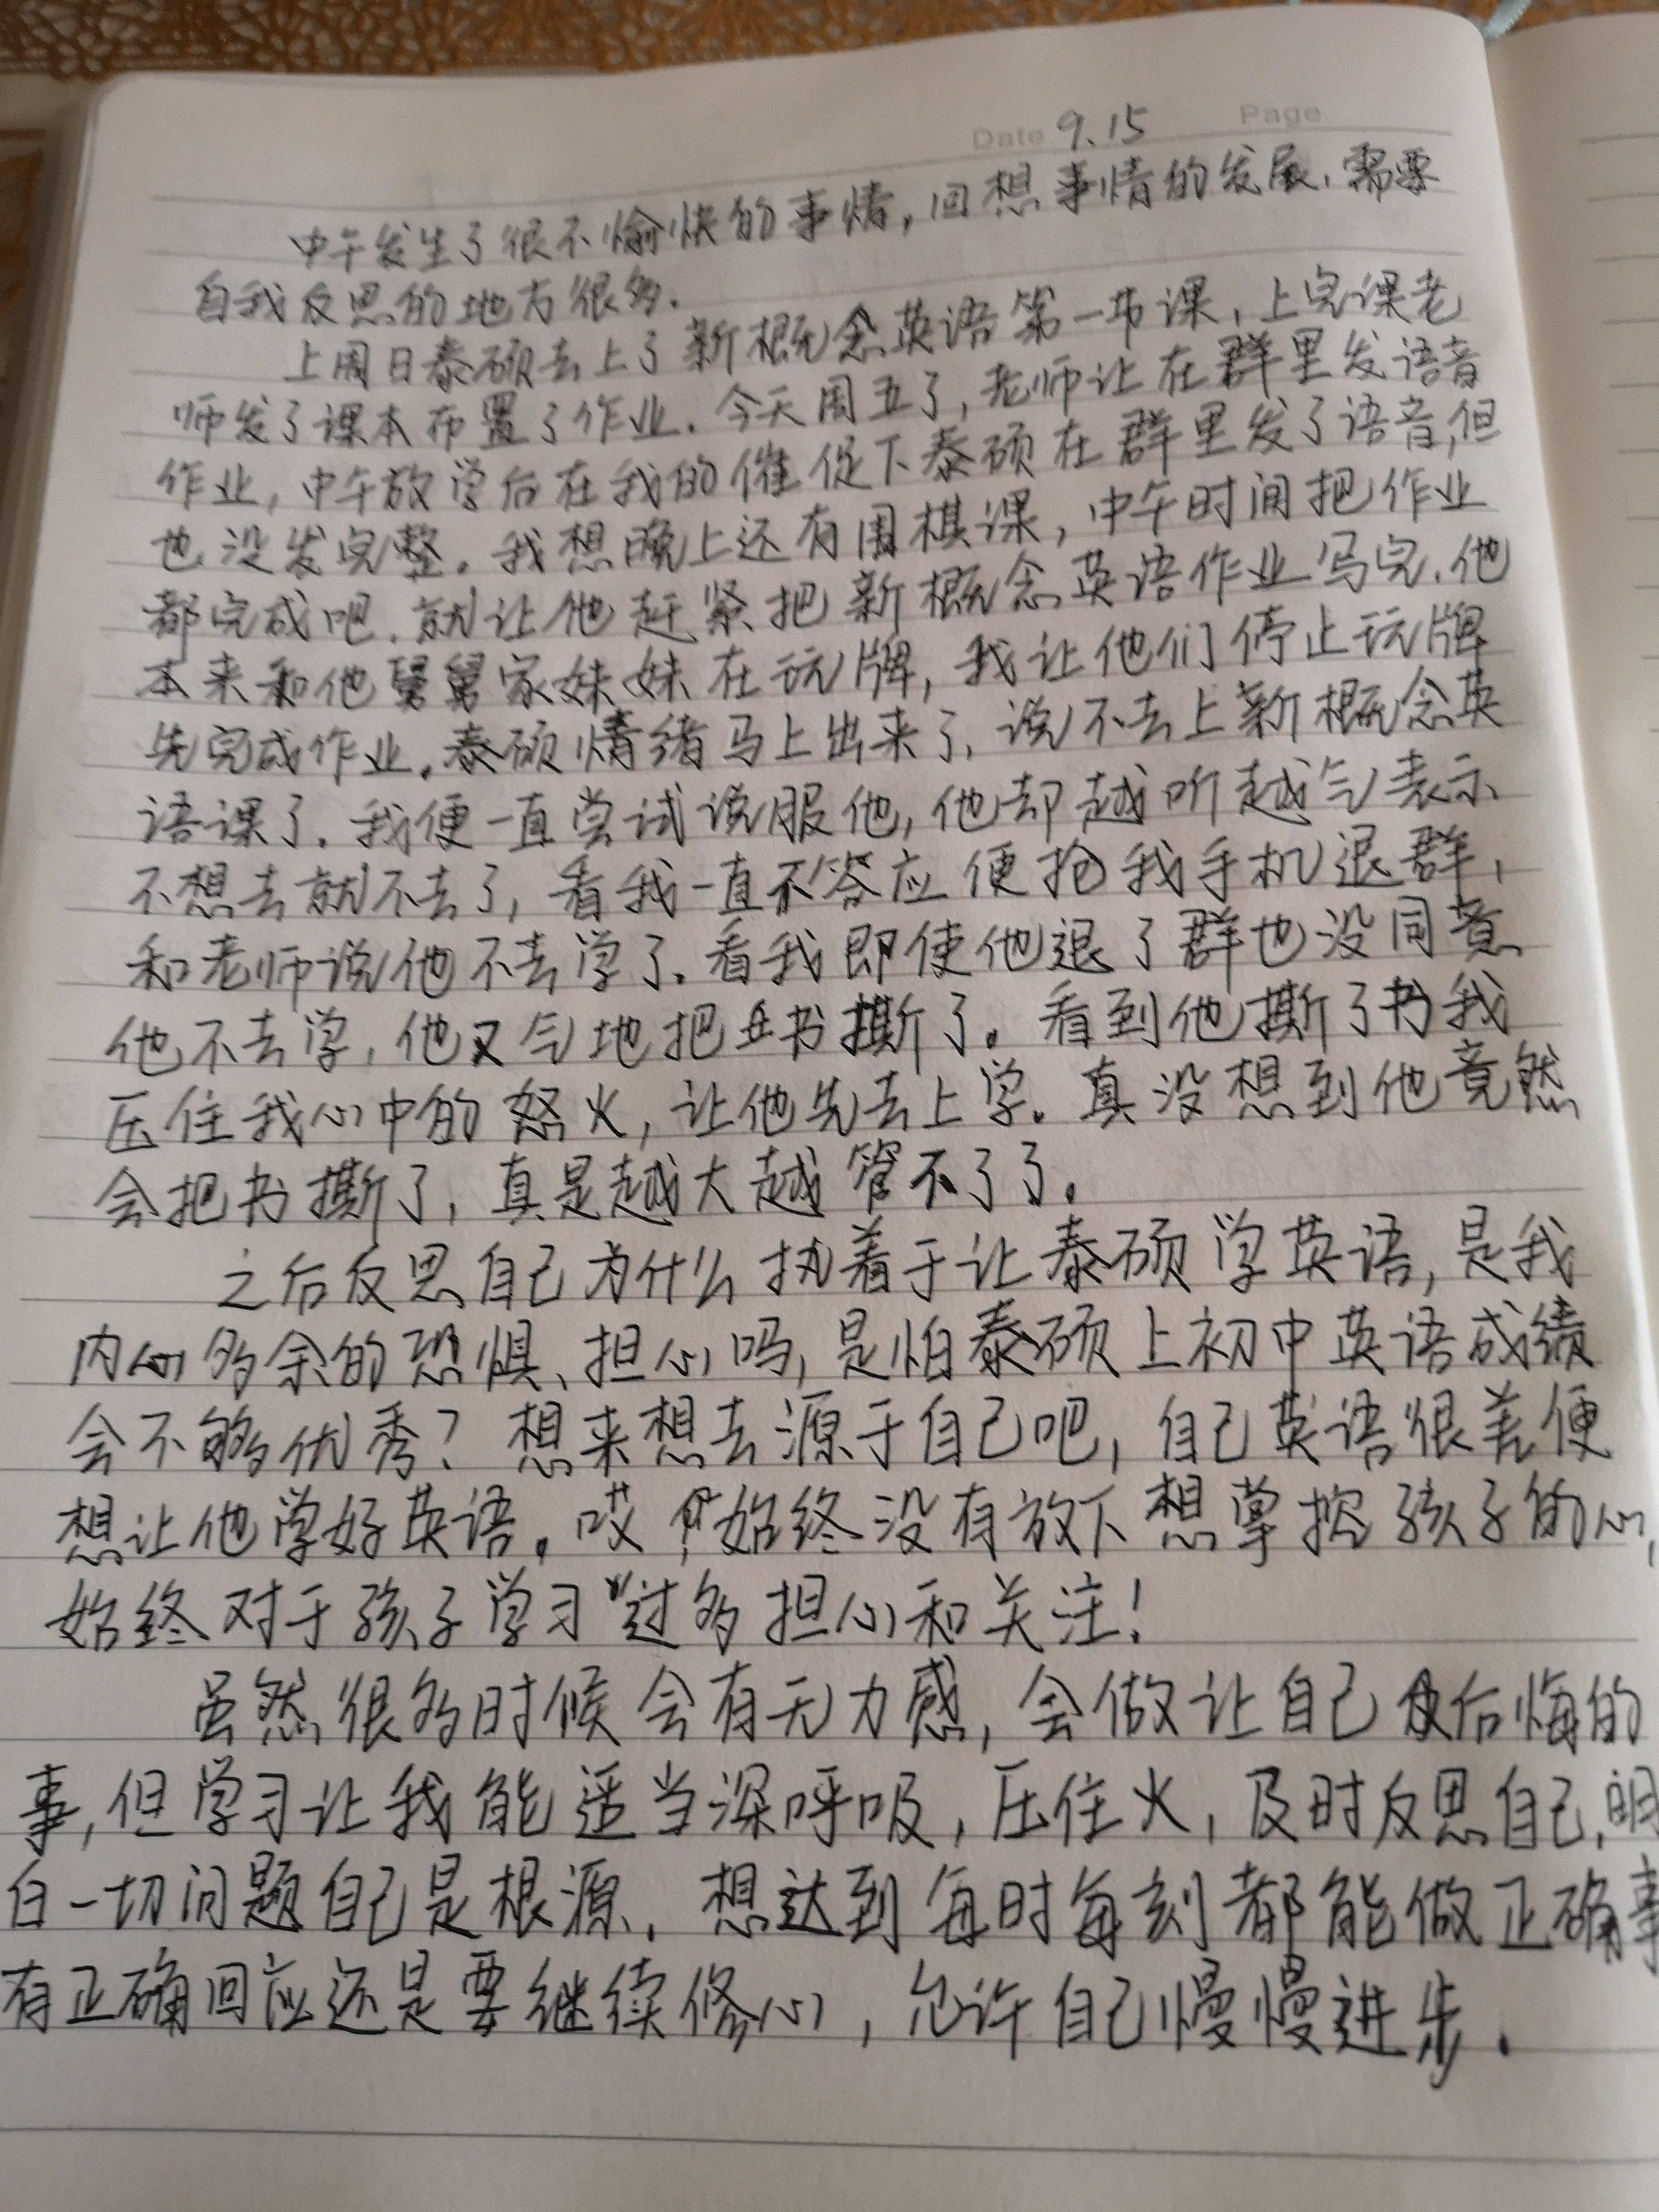 Date 9.15 Page
中午发生了很不愉快的事情，回想事情的发展、需要
自我反思的地方很多.
上周日泰硕去上了新概念英语第一节课，上完课老
师发了课本布置了作业. 今天周五了，老师让在群里发语音
作业，中午放学后在我的催促下泰硕在群里发了语音，但
也没发完整。我想晚上还有围棋课，中午时间把作业
都完成吧. 就让他赶紧把新概念英语作业写完. 他
本来和他舅舅家妹妹在玩牌，我让他们停止玩牌
先完成作业。泰硕情绪马上出来了，说不去上新概念英
语课了. 我便一直尝试说服他，他却越听越气表示
不想去就不去了，看我一直不答应便抢我手机退群、
和老师说他不去学了. 看我即使他退了群也没同意
他不去学，他又气地把书撕了。看到他撕了书我
压住我心中的怒火，让他先去上学。真没想到他竟然
会把书撕了，真是越大越管不了了.
之后反思自己为什么执着于让泰硕学英语，是我
内心多余的恐惧、担心吗，是怕泰硕上初中英语成绩
会不够优秀？想来想去源于自己吧，自己英语很差便
想让他学好英语。哎，始终没有放下想掌控孩子的心，
始终对于孩子学习过多担心和关注！
虽然很多时候会有无力感，会做让自己后悔的
事，但学习让我能适当深呼吸，压住火，及时反思自己，明
白一切问题自己是根源. 想达到每时每刻都能做正确事
有正确回应还是要继续修心，允许自己慢慢进步.